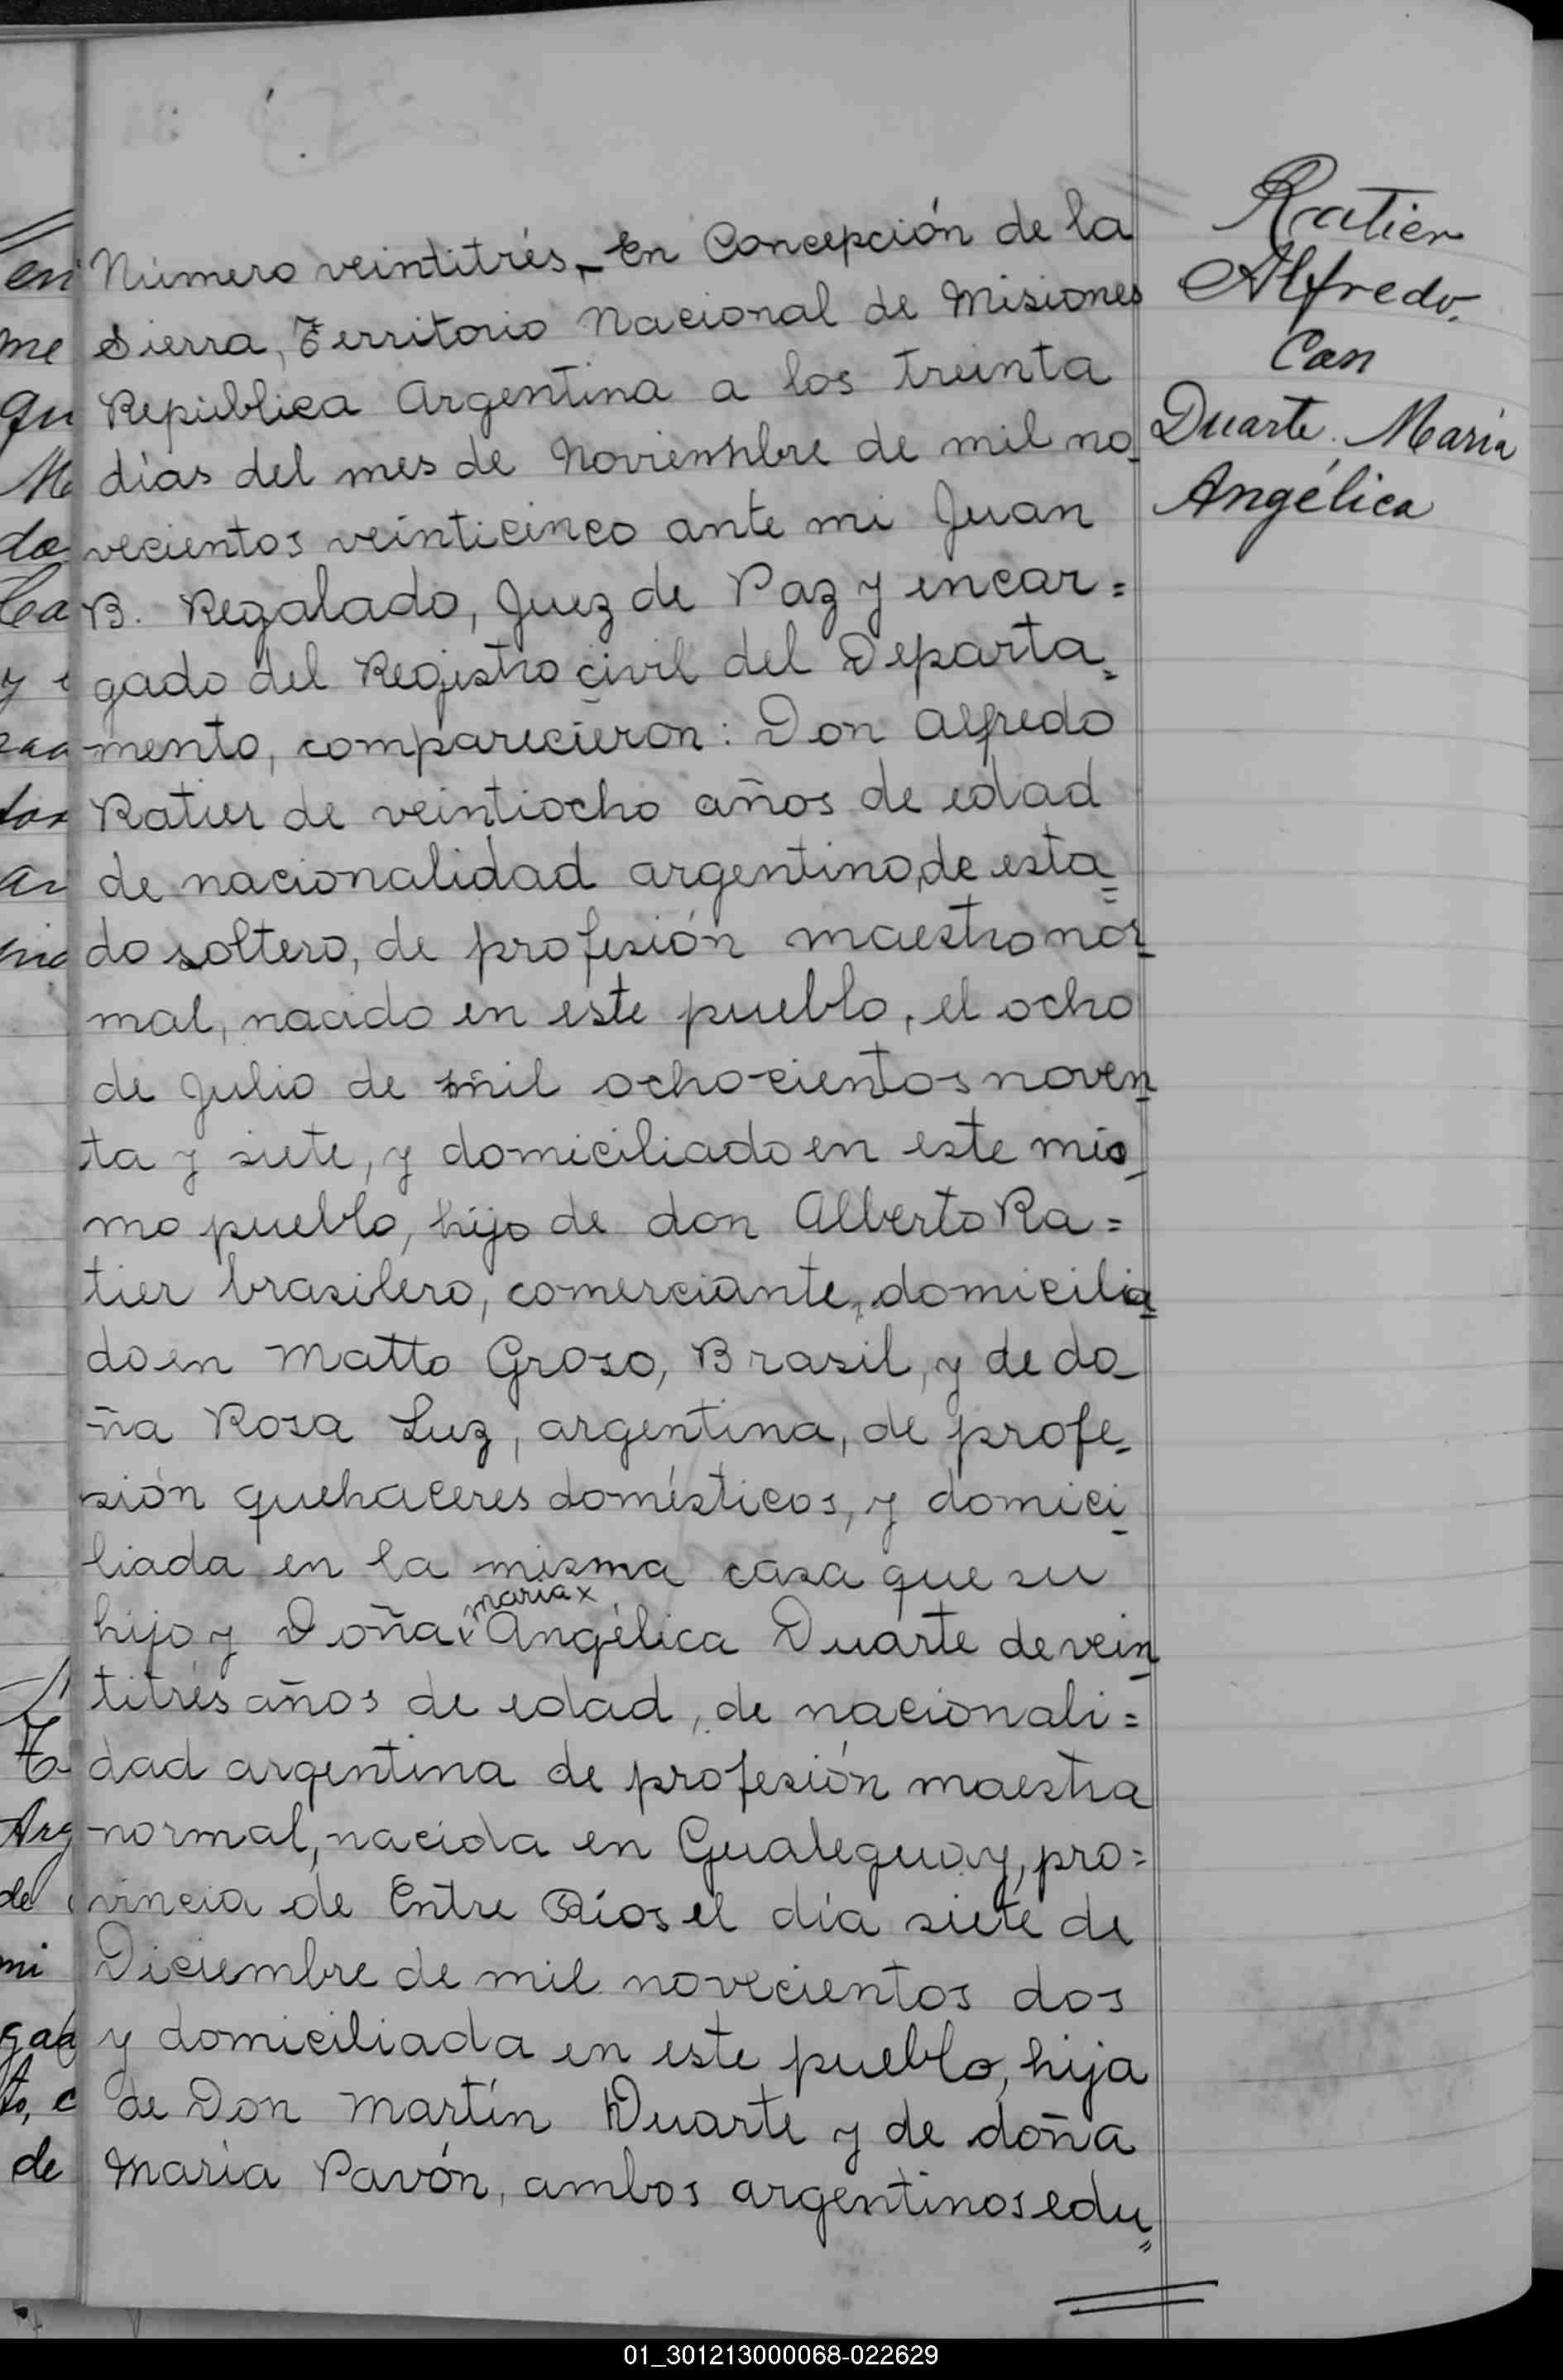 Ratier
Alfredo.
Con
Duarte. María
Angélica
Número veintitrés. En Concepción de la
Sierra, Territorio Nacional de Misiones
República Argentina a los treinta
días del mes de Noviembre de mil no-
vecientos veinticinco ante mi Juan
B. Regalado, Juez de Paz y encar=
gado del Registro civil del Departa=
mento, comparecieron: Don Alfredo
Ratier de veintiocho años de edad
de nacionalidad argentino, de esta=
do soltero, de profesión maestro nor-
mal, nacido en este pueblo, el ocho
de Julio de mil ochocientos noven-
ta y siete, y domiciliado en este mis-
mo pueblo, hijo de don Alberto Ra=
tier brasilero, comerciante, domicilia=
do en Matto Groso, Brasil, y de do-
ña Rosa Luz, argentina, de profe-
sión quehaceres domésticos, y domici-
liada en la misma casa que su
maria x
hijo y Doña x Angélica Duarte de vein-
titrés años de edad, de nacionali=
dad argentina de profesión maestra
normal, nacida en Gualeguay, pro=
vincia de Entre Ríos el día siete de
Diciembre de mil novecientos dos
y domiciliada en este pueblo, hija
de Don Martín Duarte y de doña
María Pavón, ambos argentinos edu=
01_301213000068-022629